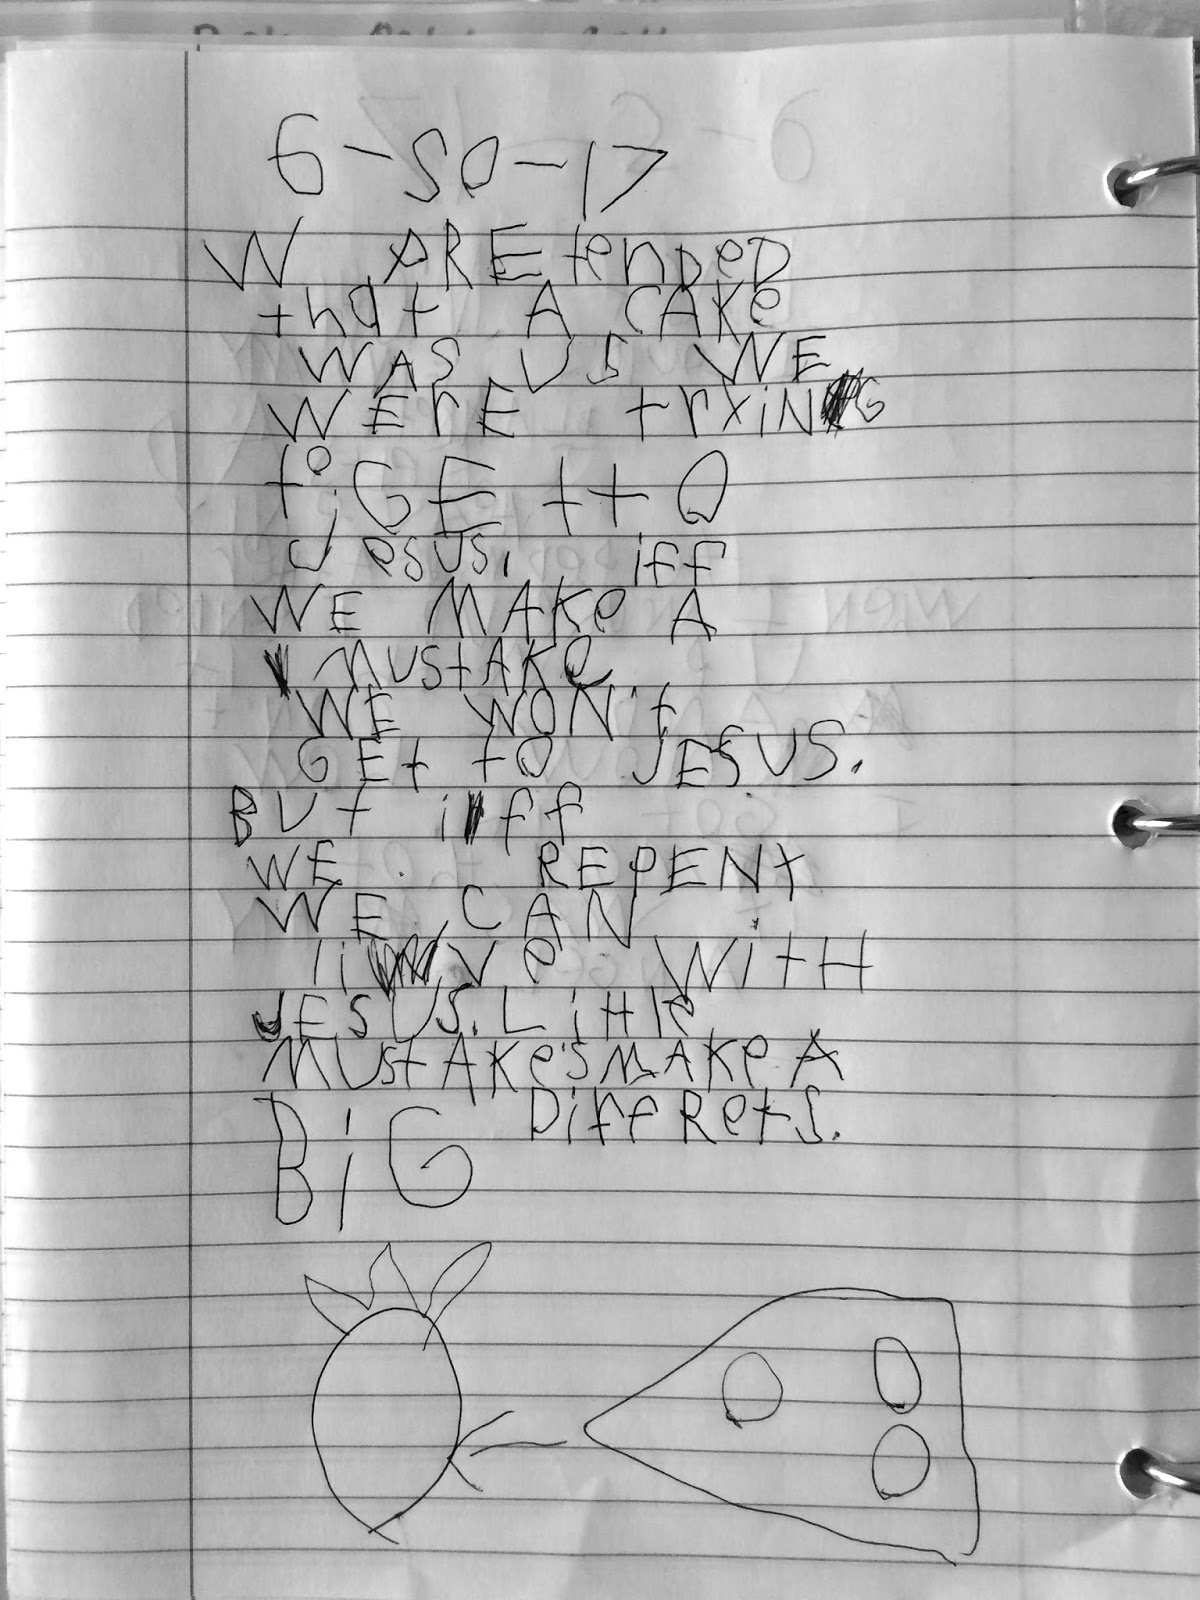 6-30-17
W PREtenDeD
that A CAKe
WAS US WE
WErE trxiNG
to GEttO
Jesus. iff
WE MAKe A
MUstAKe
WE WON't
GEt tO JESUS.
BUt iff
WE REPENt
WE CAN
live WitH
JESUS. Little
MUstAKe's MAKe A
BiG DiffeRets.